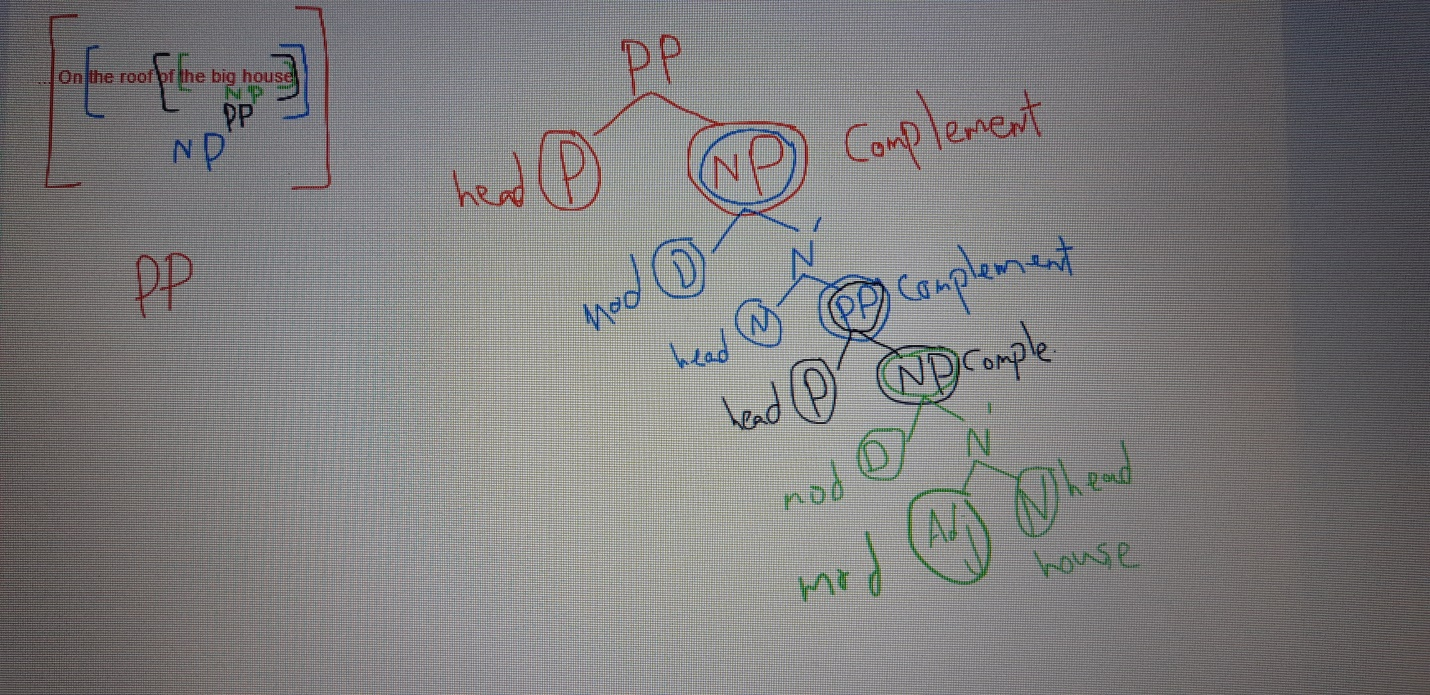 ... On the roof of the big house
NP
PP
NP
PP
PP
head P NP Complement
Mod D N'
head N PP Complement
head P NP Comple.
mod D N'
mod Adj N head
house